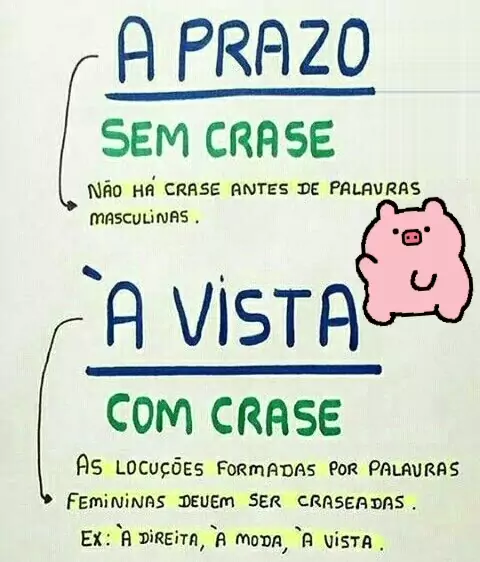 A PRAZO
SEM CRASE
NÃO HÁ CRASE ANTES DE PALAVRAS
MASCULINAS.
À VISTA
COM CRASE
AS LOCUÇÕES FORMADAS POR PALAVRAS
FEMININAS DEVEM SER CRASEADAS.
EX: À DIREITA, À MODA, À VISTA.